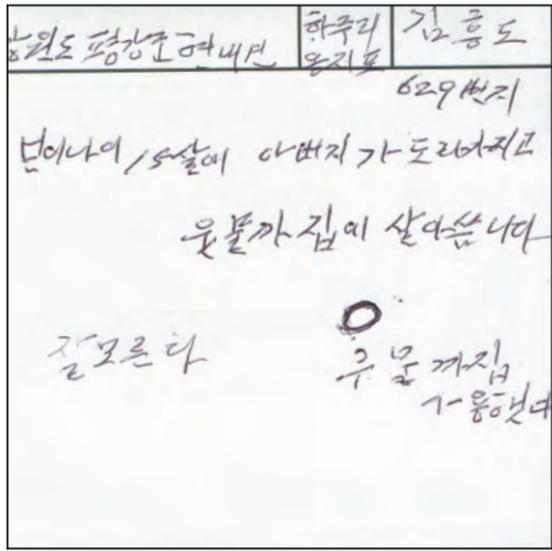 강원도 평강군 현내면
한주리
용지포
김흥도
629번지
본이나이 15살에 아버지가 도라가시고
웃물까 집에 살아씀니다
잘모른다
우물까집
사용햇다